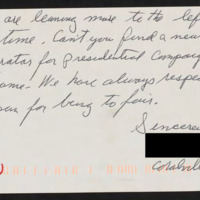 are leaning more to the lef
time. Can't you find a new
rator for Presidential Campaig
ame - We have always respe
ou for being so fair.
Sincere
Coralvil